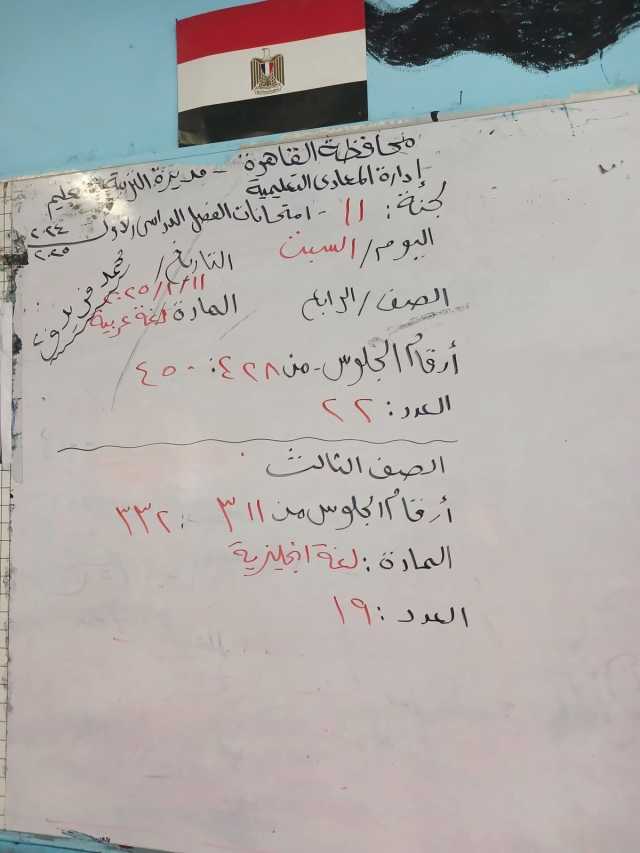 محافظة القاهرة - مديرة التربية تعليم
إدارة المعادى التعليمية
لجنة: ١١ - امتحانات الفصل الدراسى الأول ٢٠٢٤/٢٠٢٥
اليوم/ السبت التاريخ/ ٢٠٢٥/١/١١
محمد فريد
الصف/ الرابع المادة لغة عربية
أرقام الجلوس - من ٤٢٨: ٤٥٠
العدد: ٢٢
الصف الثالث
أرقام الجلوس من ٣١١ : ٣٣٢
المادة: لغة انجليزية
العدد: ١٩